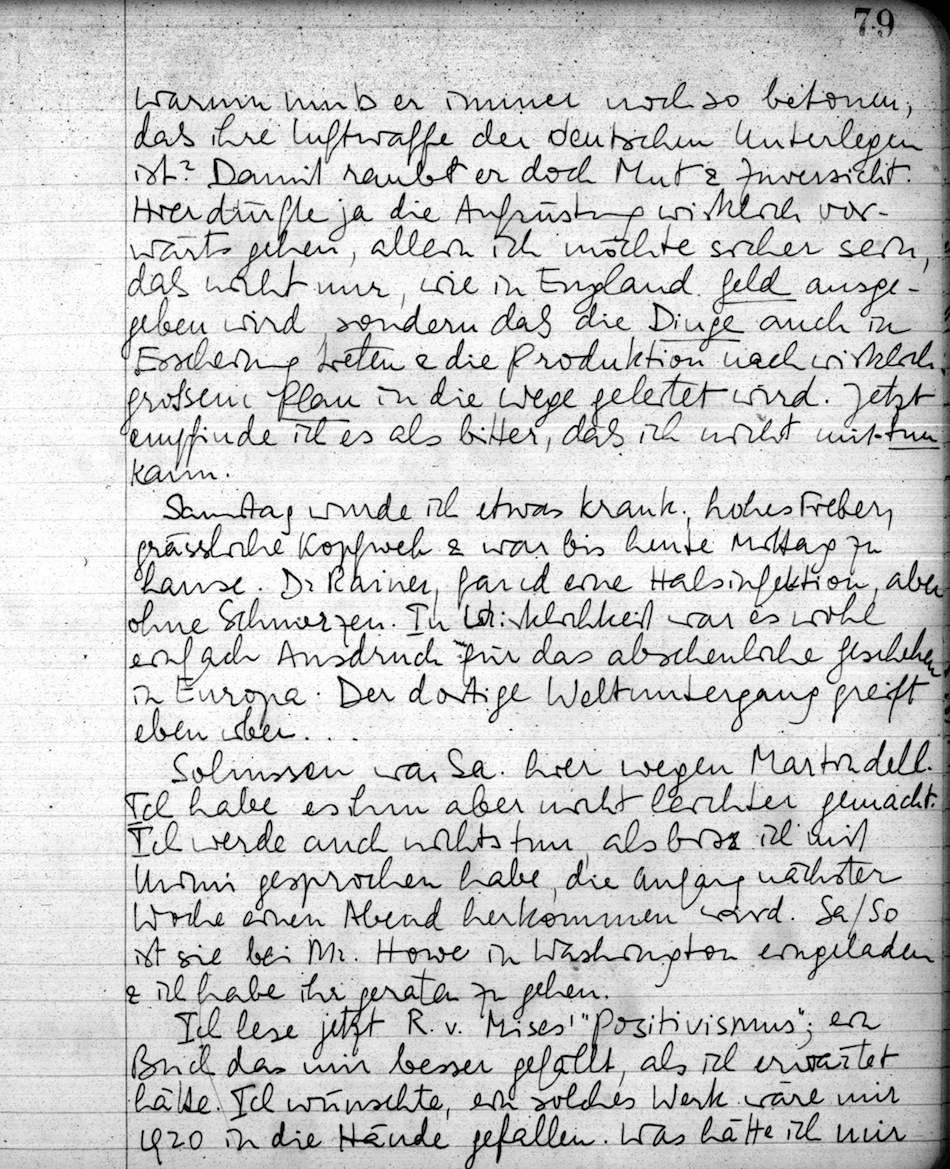 79
warum muß er immer noch so betonen,
das ihre Luftwaffe der deutschen Unterlegen
ist? Damit raubt er doch Mut & Zuversicht.
Hier dürfte ja die Aufrüstung wirklich vor-
wärts gehen, allein ich möchte sicher sein,
daß nicht nur, wie in England Geld ausge-
geben wird, sondern daß die Dinge auch in
Erscheinung treten & die Produktion nach wirklich
grossem Plan in die Wege geleitet wird. Jetzt
empfinde ich es als bitter, daß ich nicht mit-tun
kann.
Samstag wurde ich etwas krank, hohes Fieber,
grässliche Kopfweh & war bis heute Mittag zu
hause. Dr Rainer, fand eine Halsinfektion, aber
ohne Schmerzen. In Wirklichkeit war es wohl
einfach Ausdruck für das abscheuliche Geschehen
in Europa. Der dortige Weltuntergang greift
eben über...
Solmssen war Sa. hier wegen Martin dell.
Ich habe es ihm aber nicht leichter gemacht.
Ich werde auch nichts tun, als bis ich mit
Mimi gesprochen habe, die Anfang nächster
Woche einen Abend herkommen wird. Sa/So
ist sie bei Mr. Howe in Washington eingeladen
& ich habe ihr geraten zu gehen.
Ich lese jetzt R. v. Mises' "Positivismus"; ein
Buch das mir besser gefällt, als ich erwartet
hätte. Ich wünschte, ein solches Werk wäre mir
1920 in die Hände gefallen. Was hätte ich mir